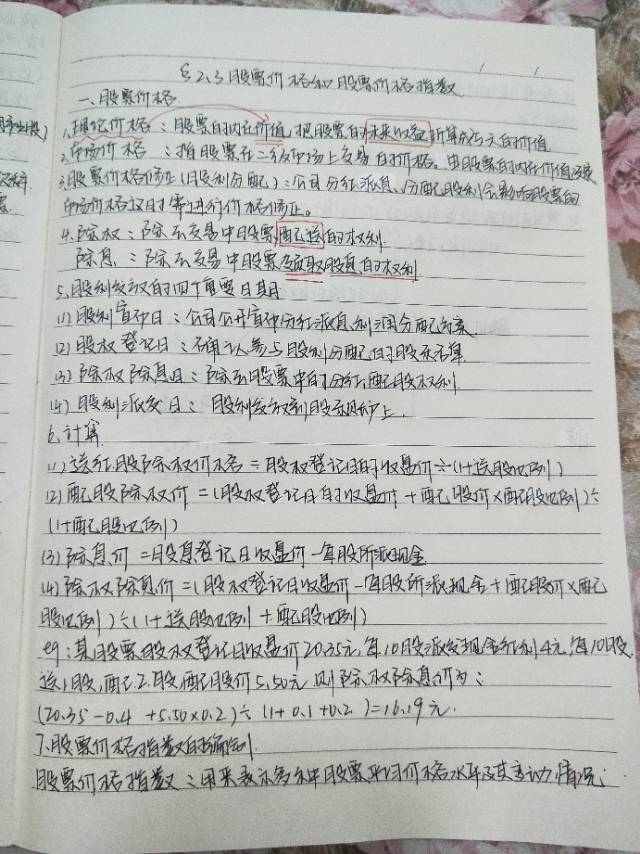 §2.3 股票价格和股票价格指数
一、股票价格
1.理论价格：股票的内在价值，把股票的未来收益折算成今天的价值
2.市场价格：指股票在二级市场上交易的价格，由股票的内在价值决定
3.股票价格修正(股利分配)：公司分红派息、分配股利会影响股票的
市场价格这时需进行价格修正。
4.除权：除去交易中股票配送的权利
除息：除去交易中股票领取股息的权利
5.股利发放的四个重要日期
(1)股利宣布日：公司公开宣布分红派息利润分配方案
(2)股权登记日：确认参与股利分配的股东名单
(3)除权除息日：除去股票中的分红配股权利
(4)股利派发日：股利发放到股东账户上.
6.计算
(1)送红股除权价格=股权登记日的收盘价÷(1+送股比例)
(2)配股除权价=(股权登记日的收盘价+配股价×配股比例)÷
(1+配股比例)
(3)除息价=股息登记日收盘价-每股所派现金
(4)除权除息价=(股权登记日收盘价-每股所派现金+配股价×配
股比例)÷(1+送股比例+配股比例)
eg：某股票股权登记日收盘价20.35元,每10股派发现金红利4元,每10股
送1股,配2股,配股价5.50元,则除权除息价为：
(20.35-0.4+5.50×0.2)÷(1+0.1+0.2)=16.19元.
7.股票价格指数的编制
股票价格指数：用来表示多种股票平均价格水平及其变动情况